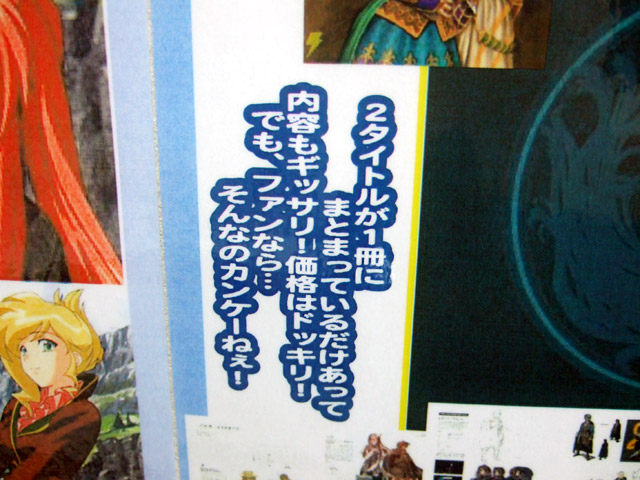 2タイトルが1冊に
まとまっているだけあって
内容もギッサリ!価格はドッキリ!
でも、ファンなら…
そんなのカンケーねぇ!